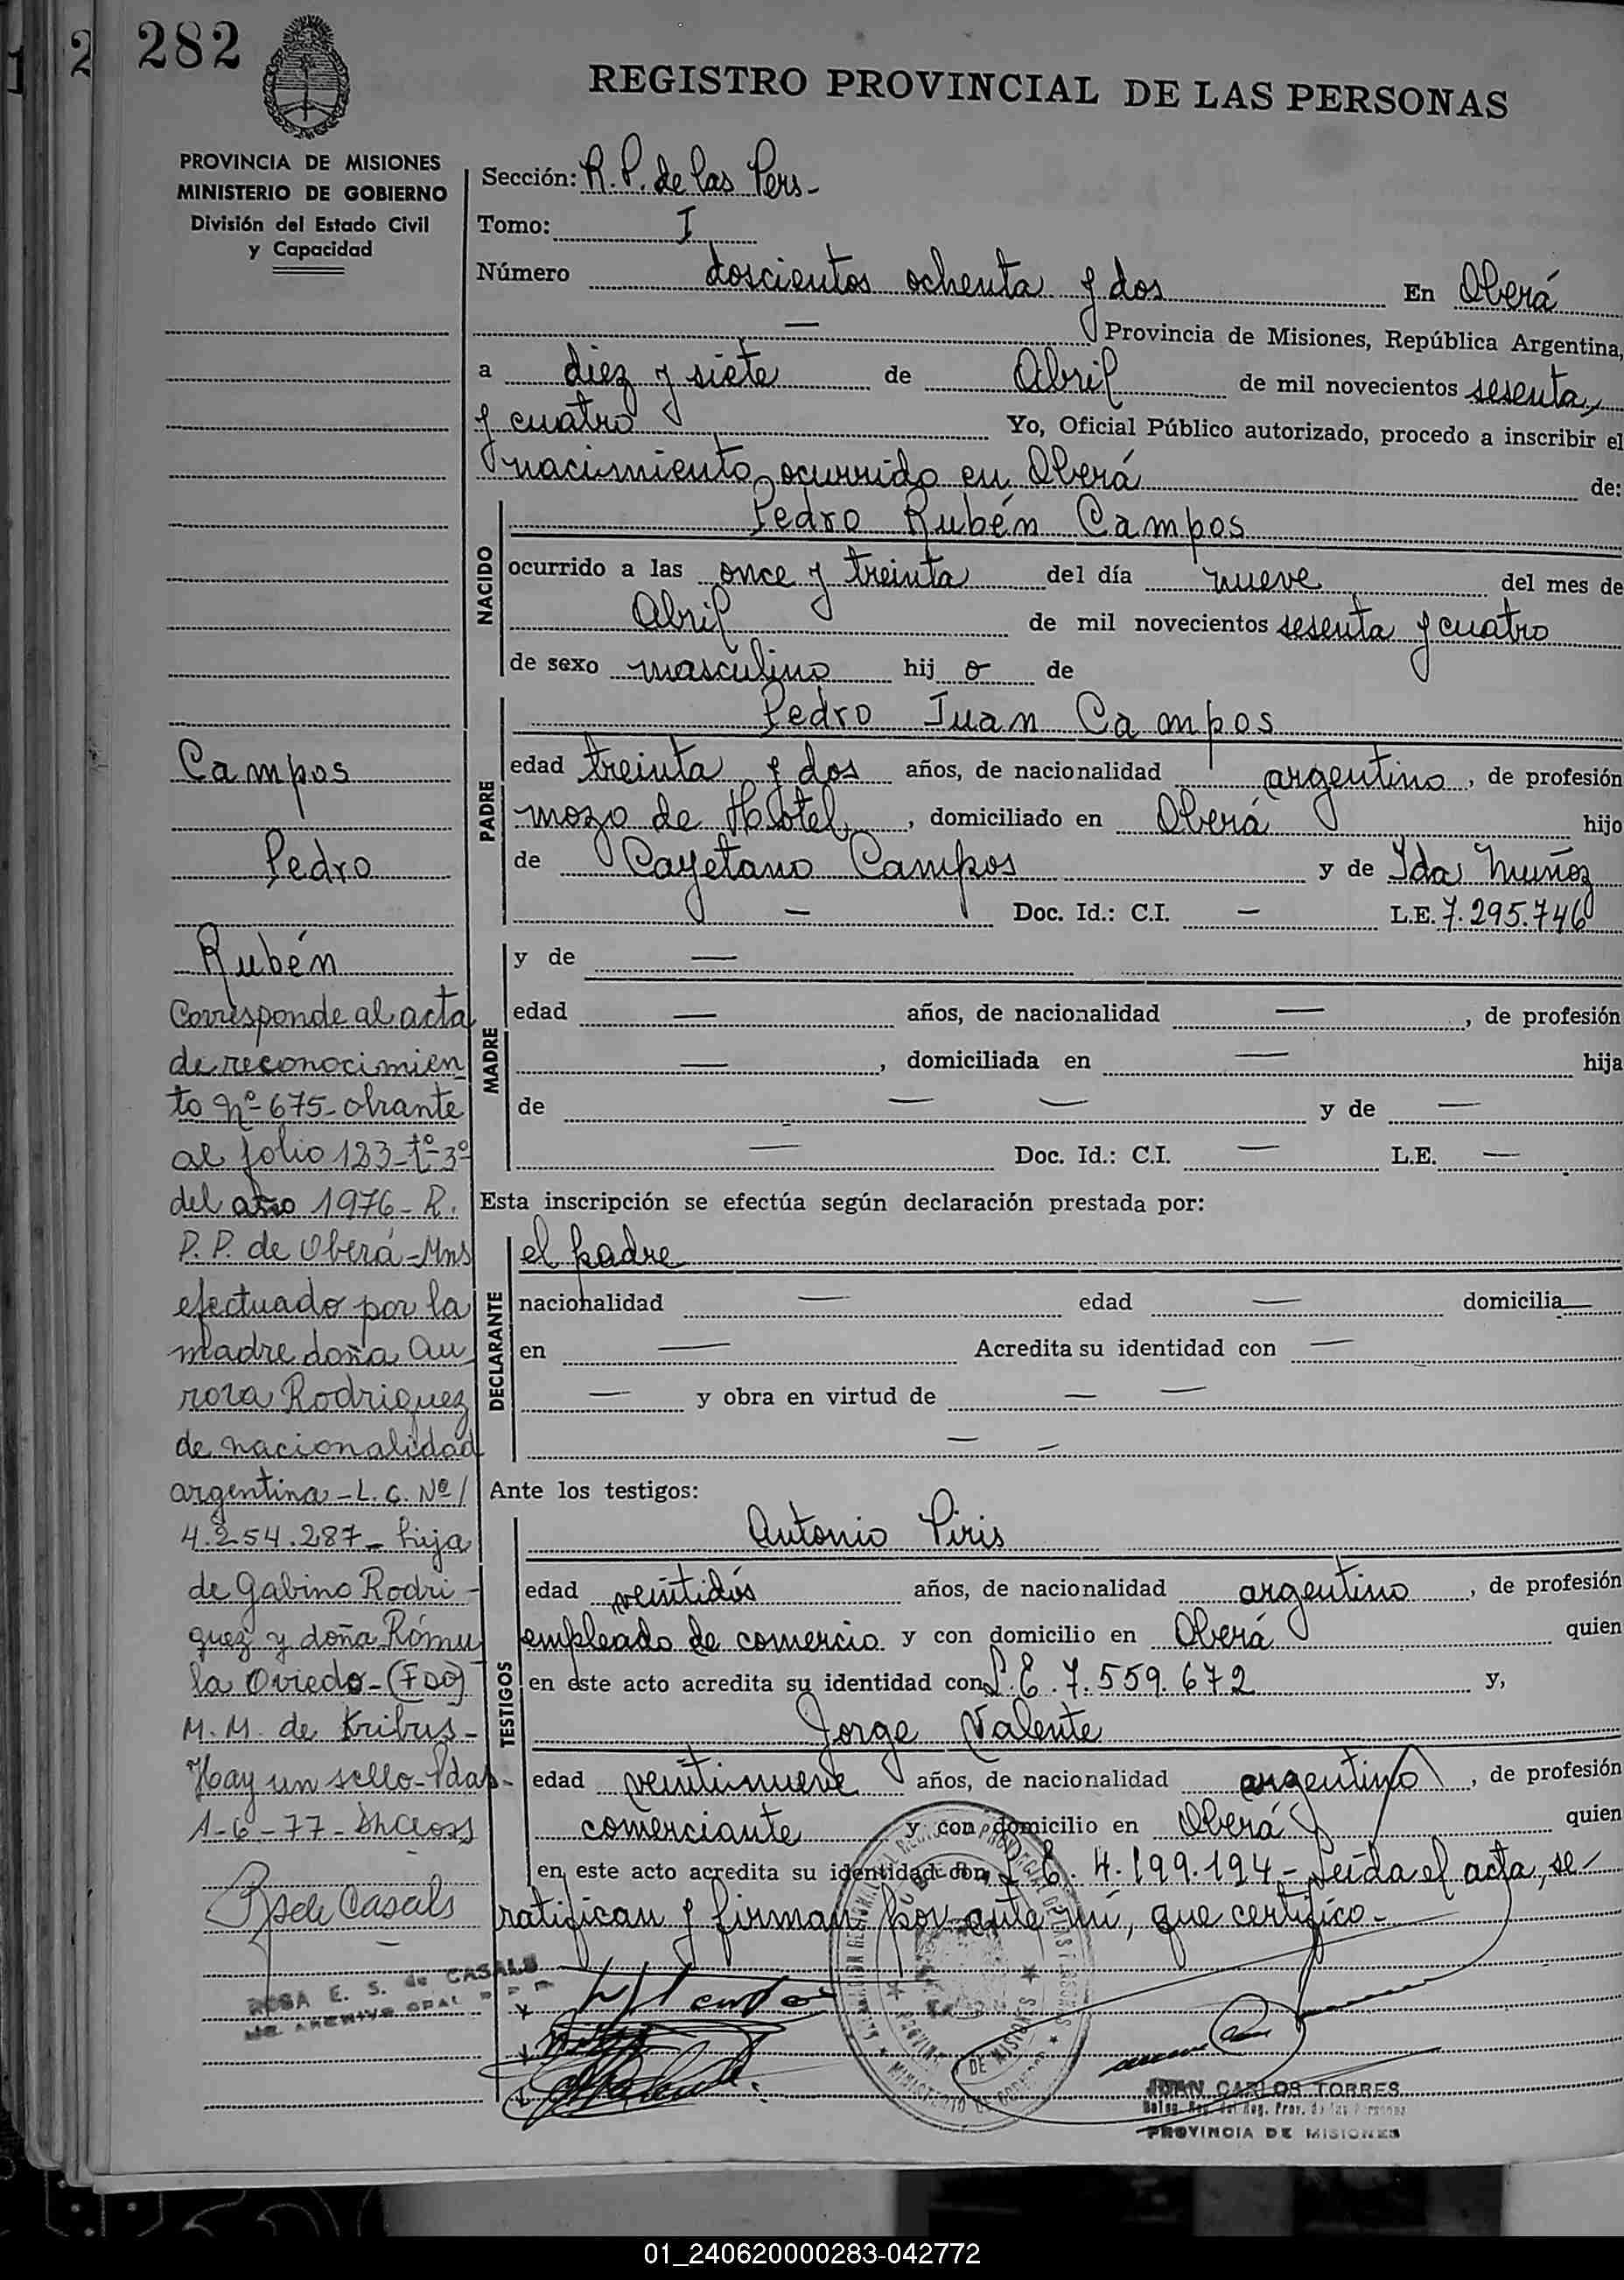 282
REGISTRO PROVINCIAL DE LAS PERSONAS
PROVINCIA DE MISIONES
MINISTERIO DE GOBIERNO
División del Estado Civil
y Capacidad
Sección: R. P. de las Pers-
Tomo: I
Número doscientos ochenta y dos En Oberá
— Provincia de Misiones, República Argentina,
a diez y siete de Abril de mil novecientos sesenta
y cuatro Yo, Oficial Público autorizado, procedo a inscribir el
nacimiento ocurrido en Oberá de:
NACIDO
Pedro Rubén Campos
ocurrido a las once y treinta del día nueve del mes de
Abril de mil novecientos sesenta y cuatro
de sexo masculino hij o de
PADRE
Pedro Juan Campos
edad treinta y dos años, de nacionalidad argentino, de profesión
mozo de Hotel, domiciliado en Oberá hijo
de Cayetano Campos y de Ida Muñoz
— Doc. Id.: C.I. — L.E. 7.295.746
MADRE
y de —
edad — años, de nacionalidad —, de profesión
—, domiciliada en — hija
de — — y de —
— Doc. Id.: C.I. — L.E. —
Esta inscripción se efectúa según declaración prestada por:
DECLARANTE
el padre
nacionalidad — edad — domicilia —
en — Acredita su identidad con —
— y obra en virtud de — —
— —
Ante los testigos:
TESTIGOS
Antonio Piris
edad veintidós años, de nacionalidad argentino, de profesión
empleado de comercio y con domicilio en Oberá quien
en este acto acredita su identidad con L.E. 7.559.672 y,
Jorge Valente
edad veintinueve años, de nacionalidad argentino, de profesión
comerciante y con domicilio en Oberá quien
en este acto acredita su identidad con L.E. 4.199.194- Leída el acta, se
ratifican y firman por ante mí, que certifico-
Campos
Pedro
Rubén
Corresponde al acta
de reconocimien
to Nº 675- obrante
al folio 123-tº-3º
del año 1976- R.
P. P. de Oberá-Mns
efectuado por la
madre doña Au
rora Rodriguez
de nacionalidad
argentina-L.C. Nº/
4.254.287- hija
de Gabino Rodri-
guez y doña Rómu
la Oviedo-(FDO)
M. M. de Kribus-
Hay un sello-Pdas-
1-6-77-
R S de Casals
ROSA E. S. de CASALS
JUAN CARLOS TORRES
Deleg. Reg. del Reg. Prov. de las Personas
PROVINCIA DE MISIONES
01_240620000283-042772